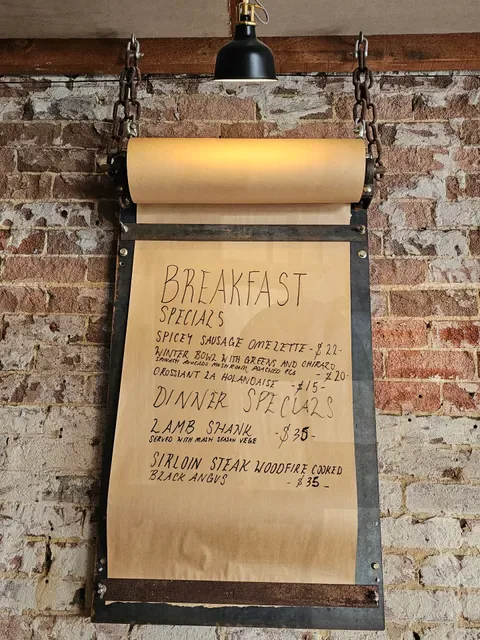 BREAKFAST
SPECIALS
SPICEY SAUSAGE OMELETTE - $22-
WINTER BOWL WITH GREENS AND CHIRAZO
SPINATH AVOCADO MUSHROOM POACHED EGG - $20-
CROSSIANT LA HOLANDAISE - $15-
DINNER SPECIALS
LAMB SHANK - $35-
SERVED WITH MASH SEASON VEGE
SIRLOIN STEAK WOODFIRE COOKED
BLACK ANGUS - $35-